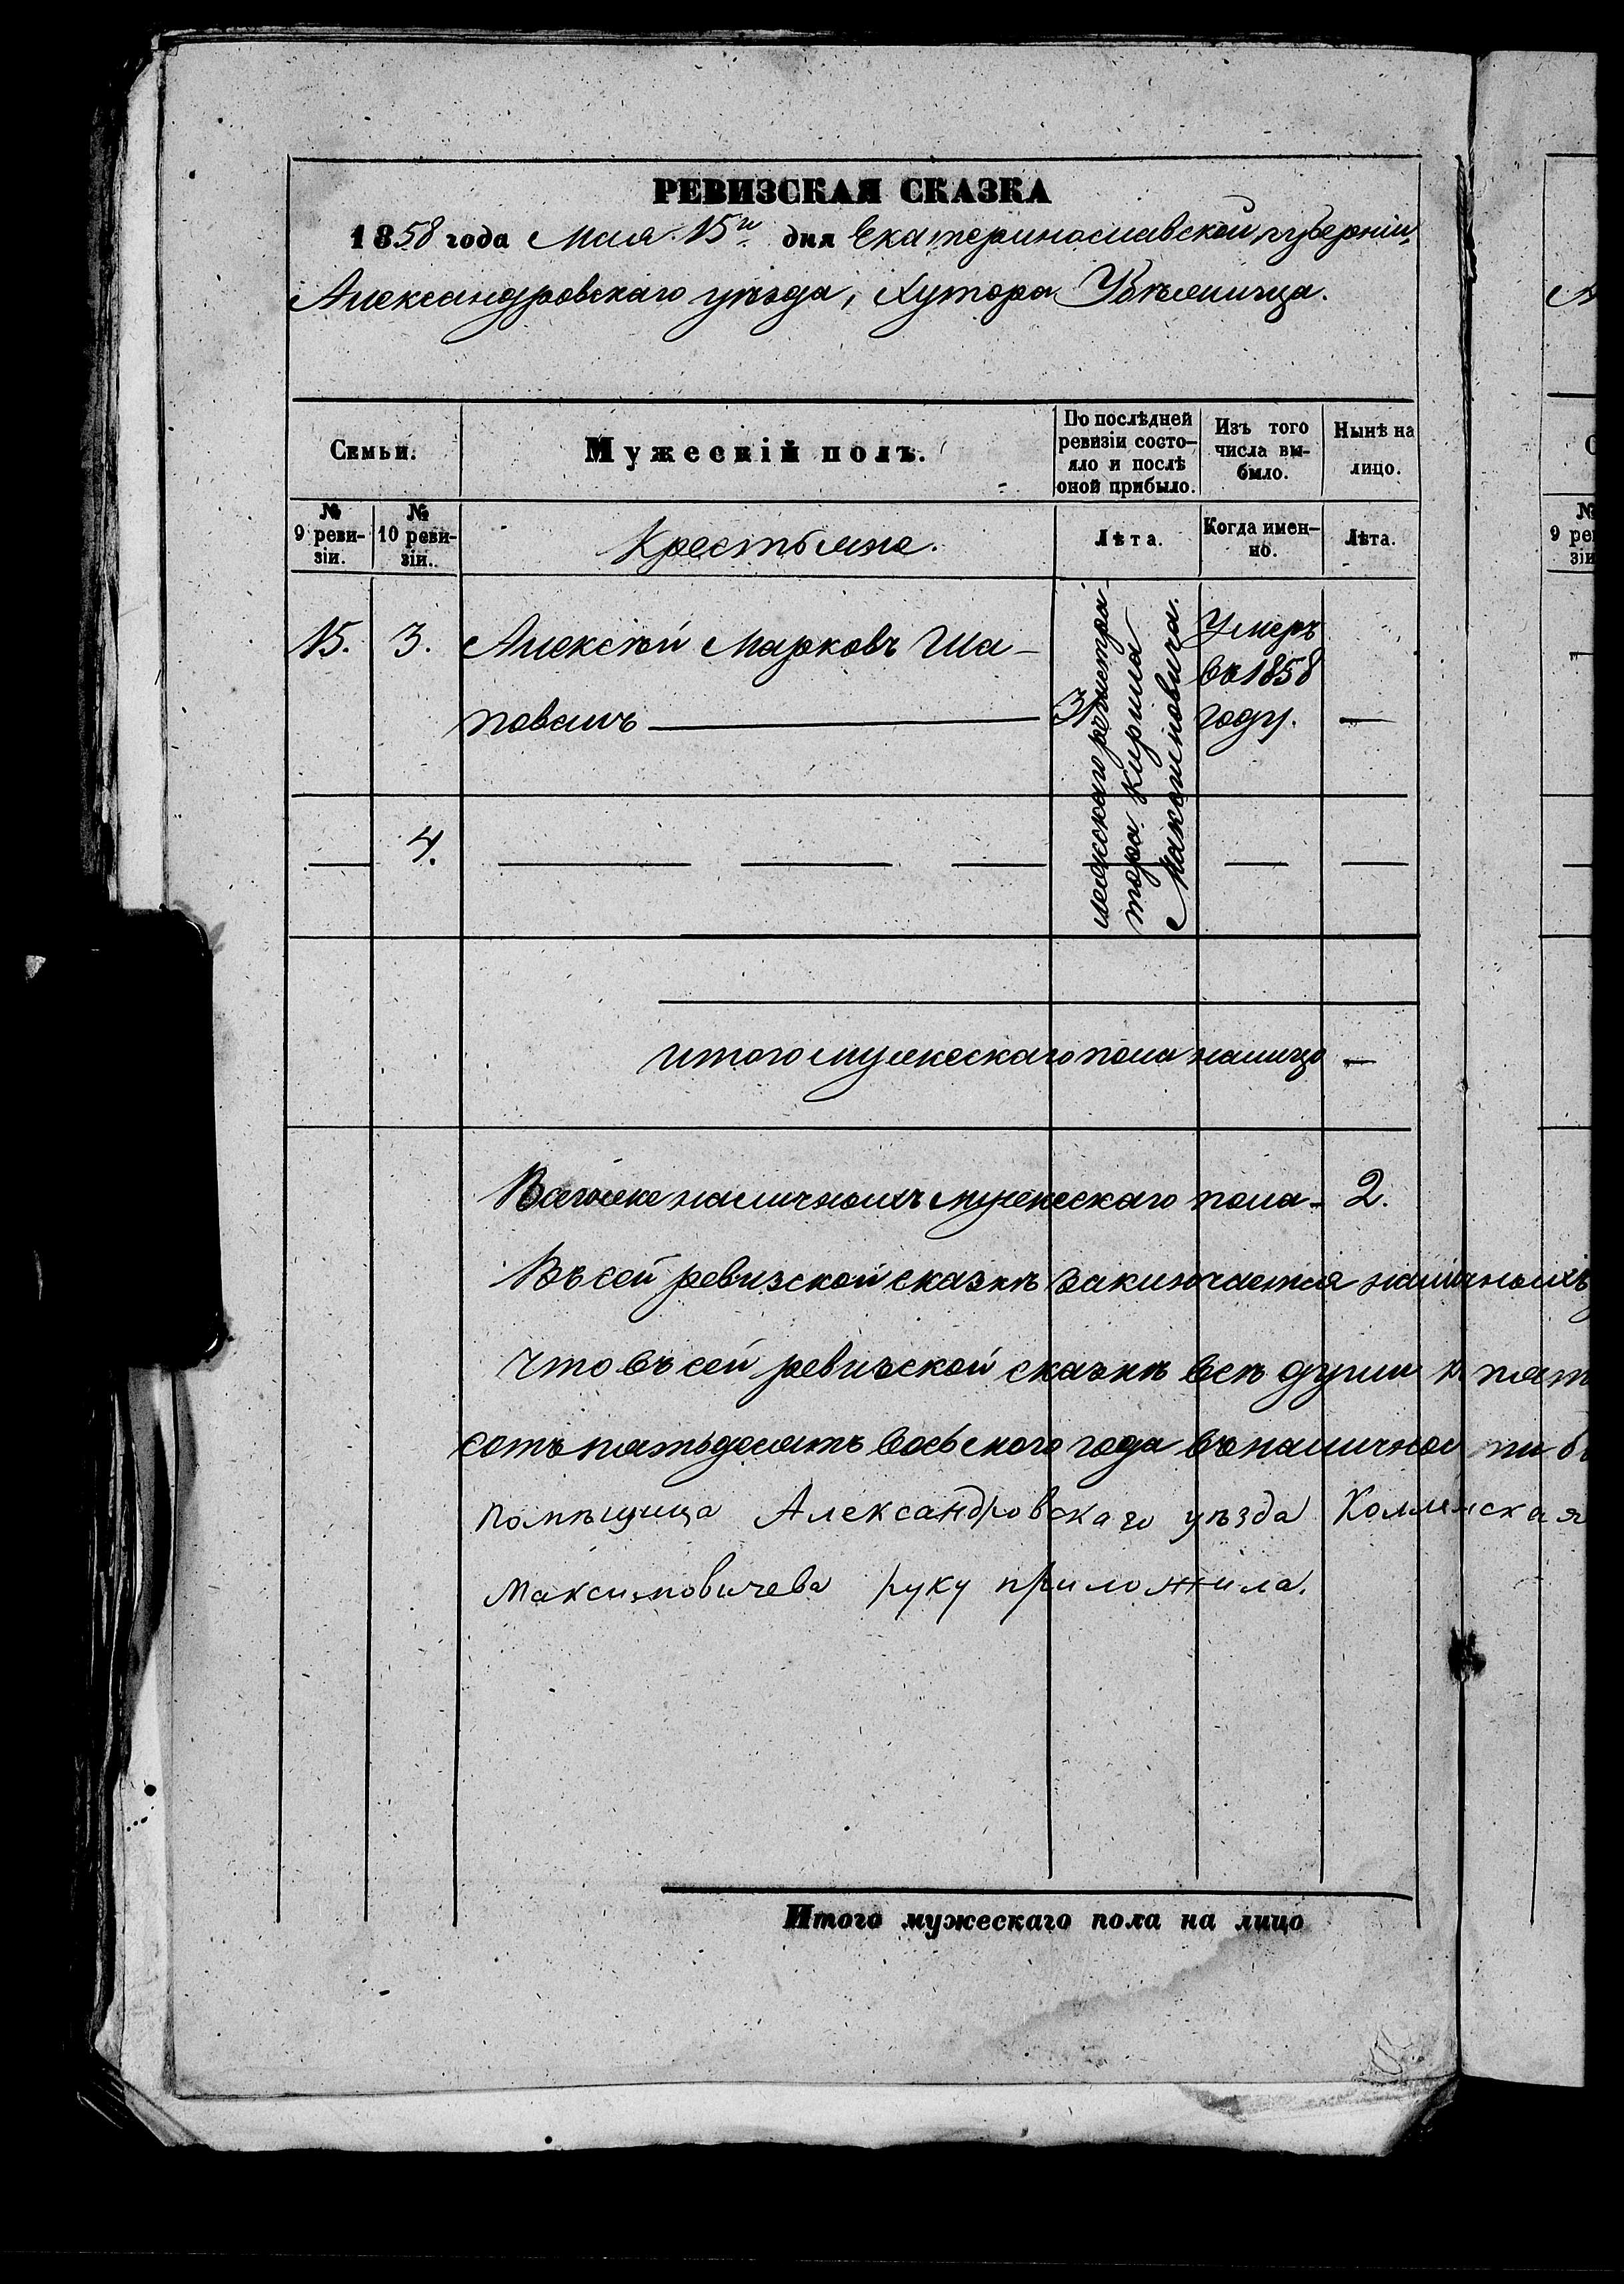 РЕВИЗСКАЯ СКАЗКА
1858 года Мая 15го дня Екатеринославской губерніи,
Александровскаго уѣзда, Хутора
Семьи.
Мужескій полъ.
По послѣдней ревизіи состо-яло и послѣ оной прибыло.
Изъ того числа вы-было.
Нынѣ на лицо.
№ 9 реви-зіи.
№ 10 реви-зіи.
Крестьяне.
Лѣта.
Когда имен-но.
Лѣта.
15. 3. Алексѣй Марковъ Ша-
повалъ — 31
Умеръ
въ 1858
году. —
лежскаго регистра
тора Кирила
Максимовича.
— 4. — — — — — —
Итого мужескаго пола налицо —
Всего же наличныхъ мужескаго пола - 2.
Въ сей ревизской сказкѣ заключается наличныхъ
Что въ сей ревизской сказкѣ всѣ души
сотъ пятьдесятъ восьмого года въ наличнос
помѣщица Александровскаго уѣзда
Максимовичева руку приложила.
Итого мужескаго пола на лицо
№
9 ре
зіи